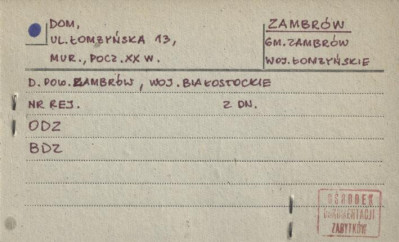 DOM,
UL. ŁOMŻYŃSKA 13,
MUR., POCZ. XX W.
ZAMBRÓW
GM. ZAMBRÓW
WOJ. ŁOMŻYŃSKIE
D. POW. ZAMBRÓW, WOJ. BIAŁOSTOCKIE
NR REJ. Z DN.
ODZ
BDZ
OŚRODEK
DOKUMENTACJI
ZABYTKÓW